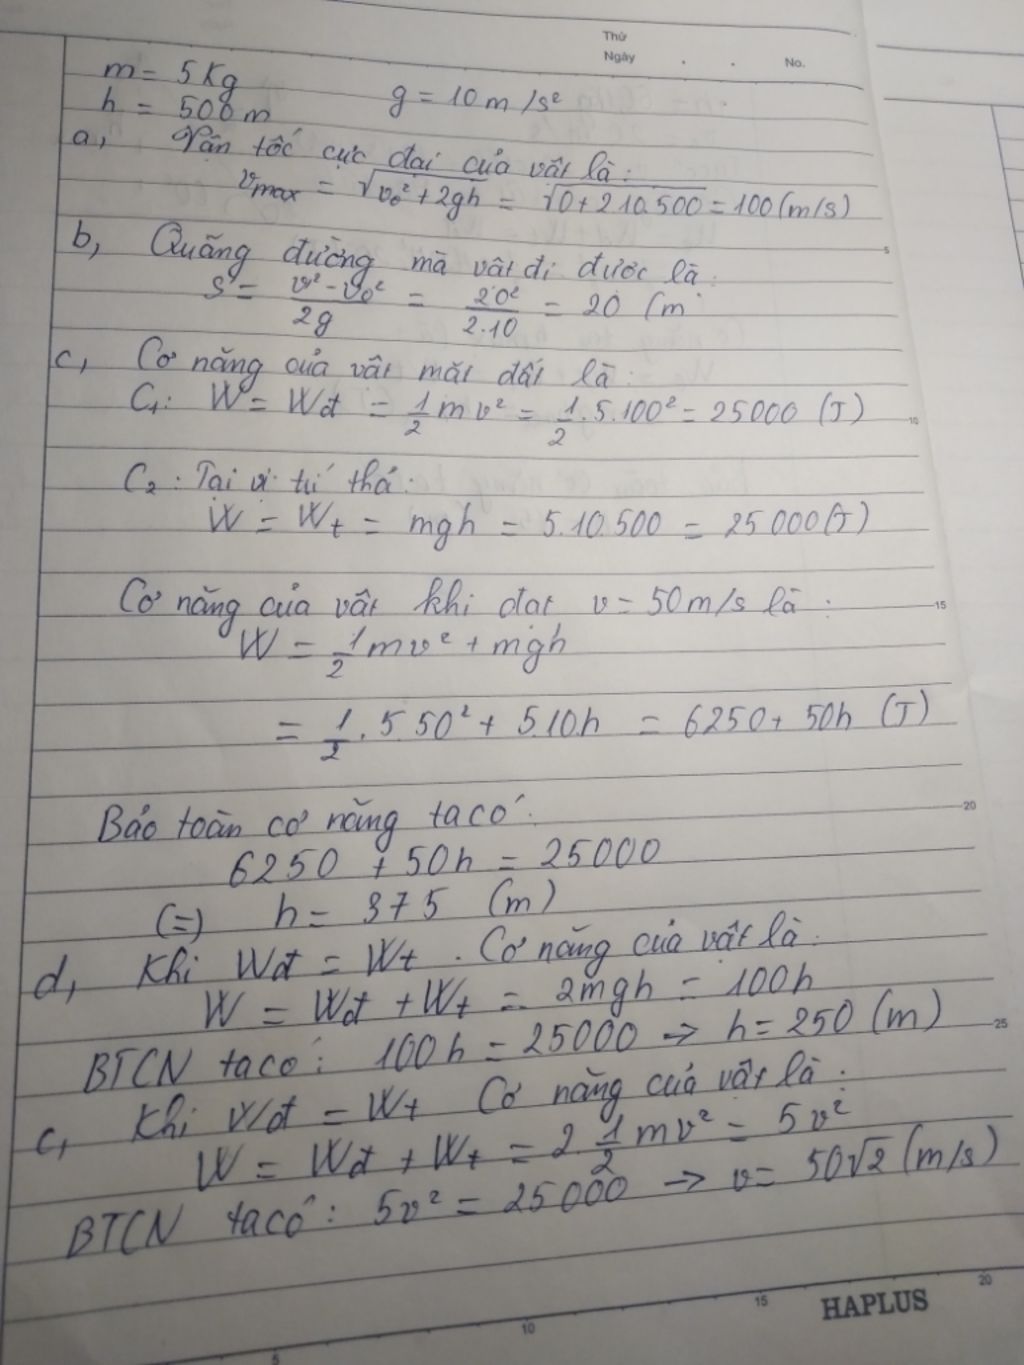 Thứ
Ngày . . No.
m = 5 Kg
h = 500 m g = 10 m/s²
a, Vận tốc cực đại của vật là:
vmax = √v₀² + 2gh = √0 + 2.10.500 = 100 (m/s)
b, Quãng đường mà vật đi được là:
S = v² - v₀² / 2g = 20² / 2.10 = 20 (m
c, Cơ năng của vật mặt đất là:
C₁: W = Wđ = 1/2 mv² = 1/2 . 5.100² = 25000 (J)
C₂: Tại vị trí thả:
W = Wt = mgh = 5.10.500 = 25000 (J)
Cơ năng của vật khi đạt v = 50m/s là:
W = 1/2 mv² + mgh
= 1/2 . 5.50² + 5.10.h = 6250 + 50h (J)
Bảo toàn cơ năng ta có:
6250 + 50h = 25000
(=) h = 375 (m)
d, Khi Wđ = Wt. Cơ năng của vật là:
W = Wđ + Wt = 2mgh = 100h
BTCN ta có: 100h = 25000 → h = 250 (m)
c, Khi Wđ = Wt Cơ năng của vật là:
W = Wđ + Wt = 2.1/2 mv² = 5v²
BTCN ta có: 5v² = 25000 → v = 50√2 (m/s)
5 10 15 20
HAPLUS